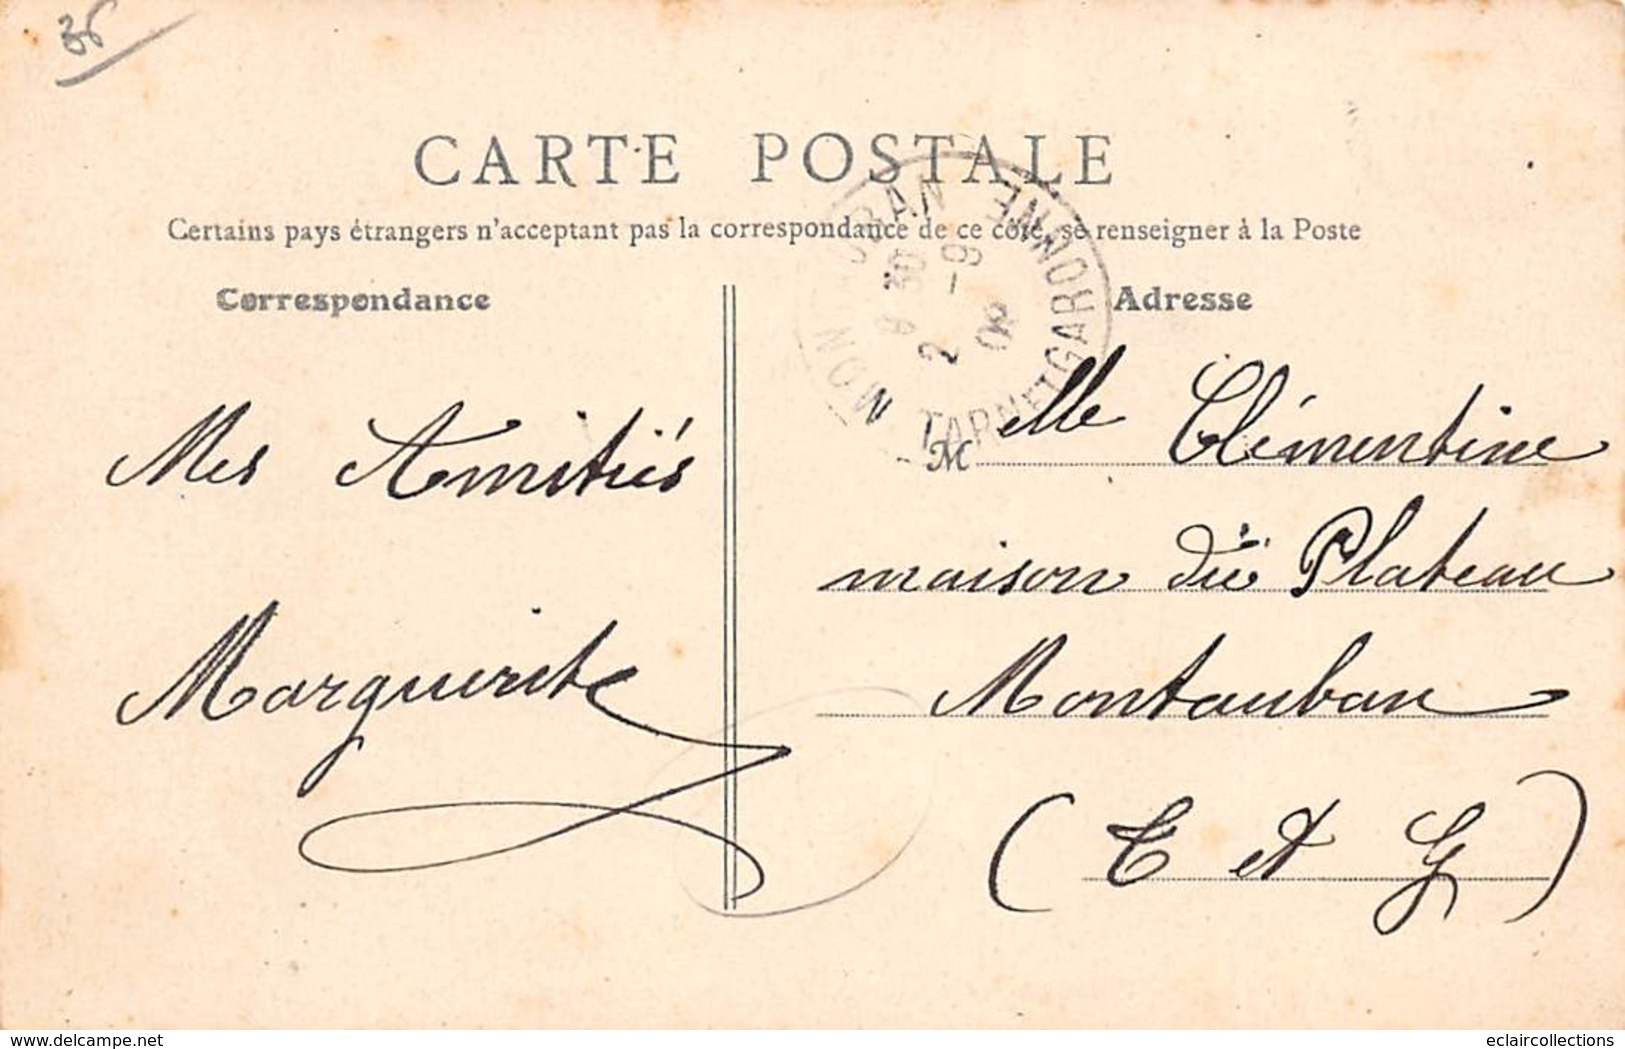 35
CARTE POSTALE
Certains pays étrangers n'acceptent pas la correspondance de ce côté, se renseigner à la Poste
Correspondance
Adresse
MONTAUBAN
TARN ET GARONNE
8 30
2 -9
08
Mes Amitiés
Marguerite
Melle Clémentine
maison du Plateau
Montauban
(T et G)
delcampe.net
eclaircollections